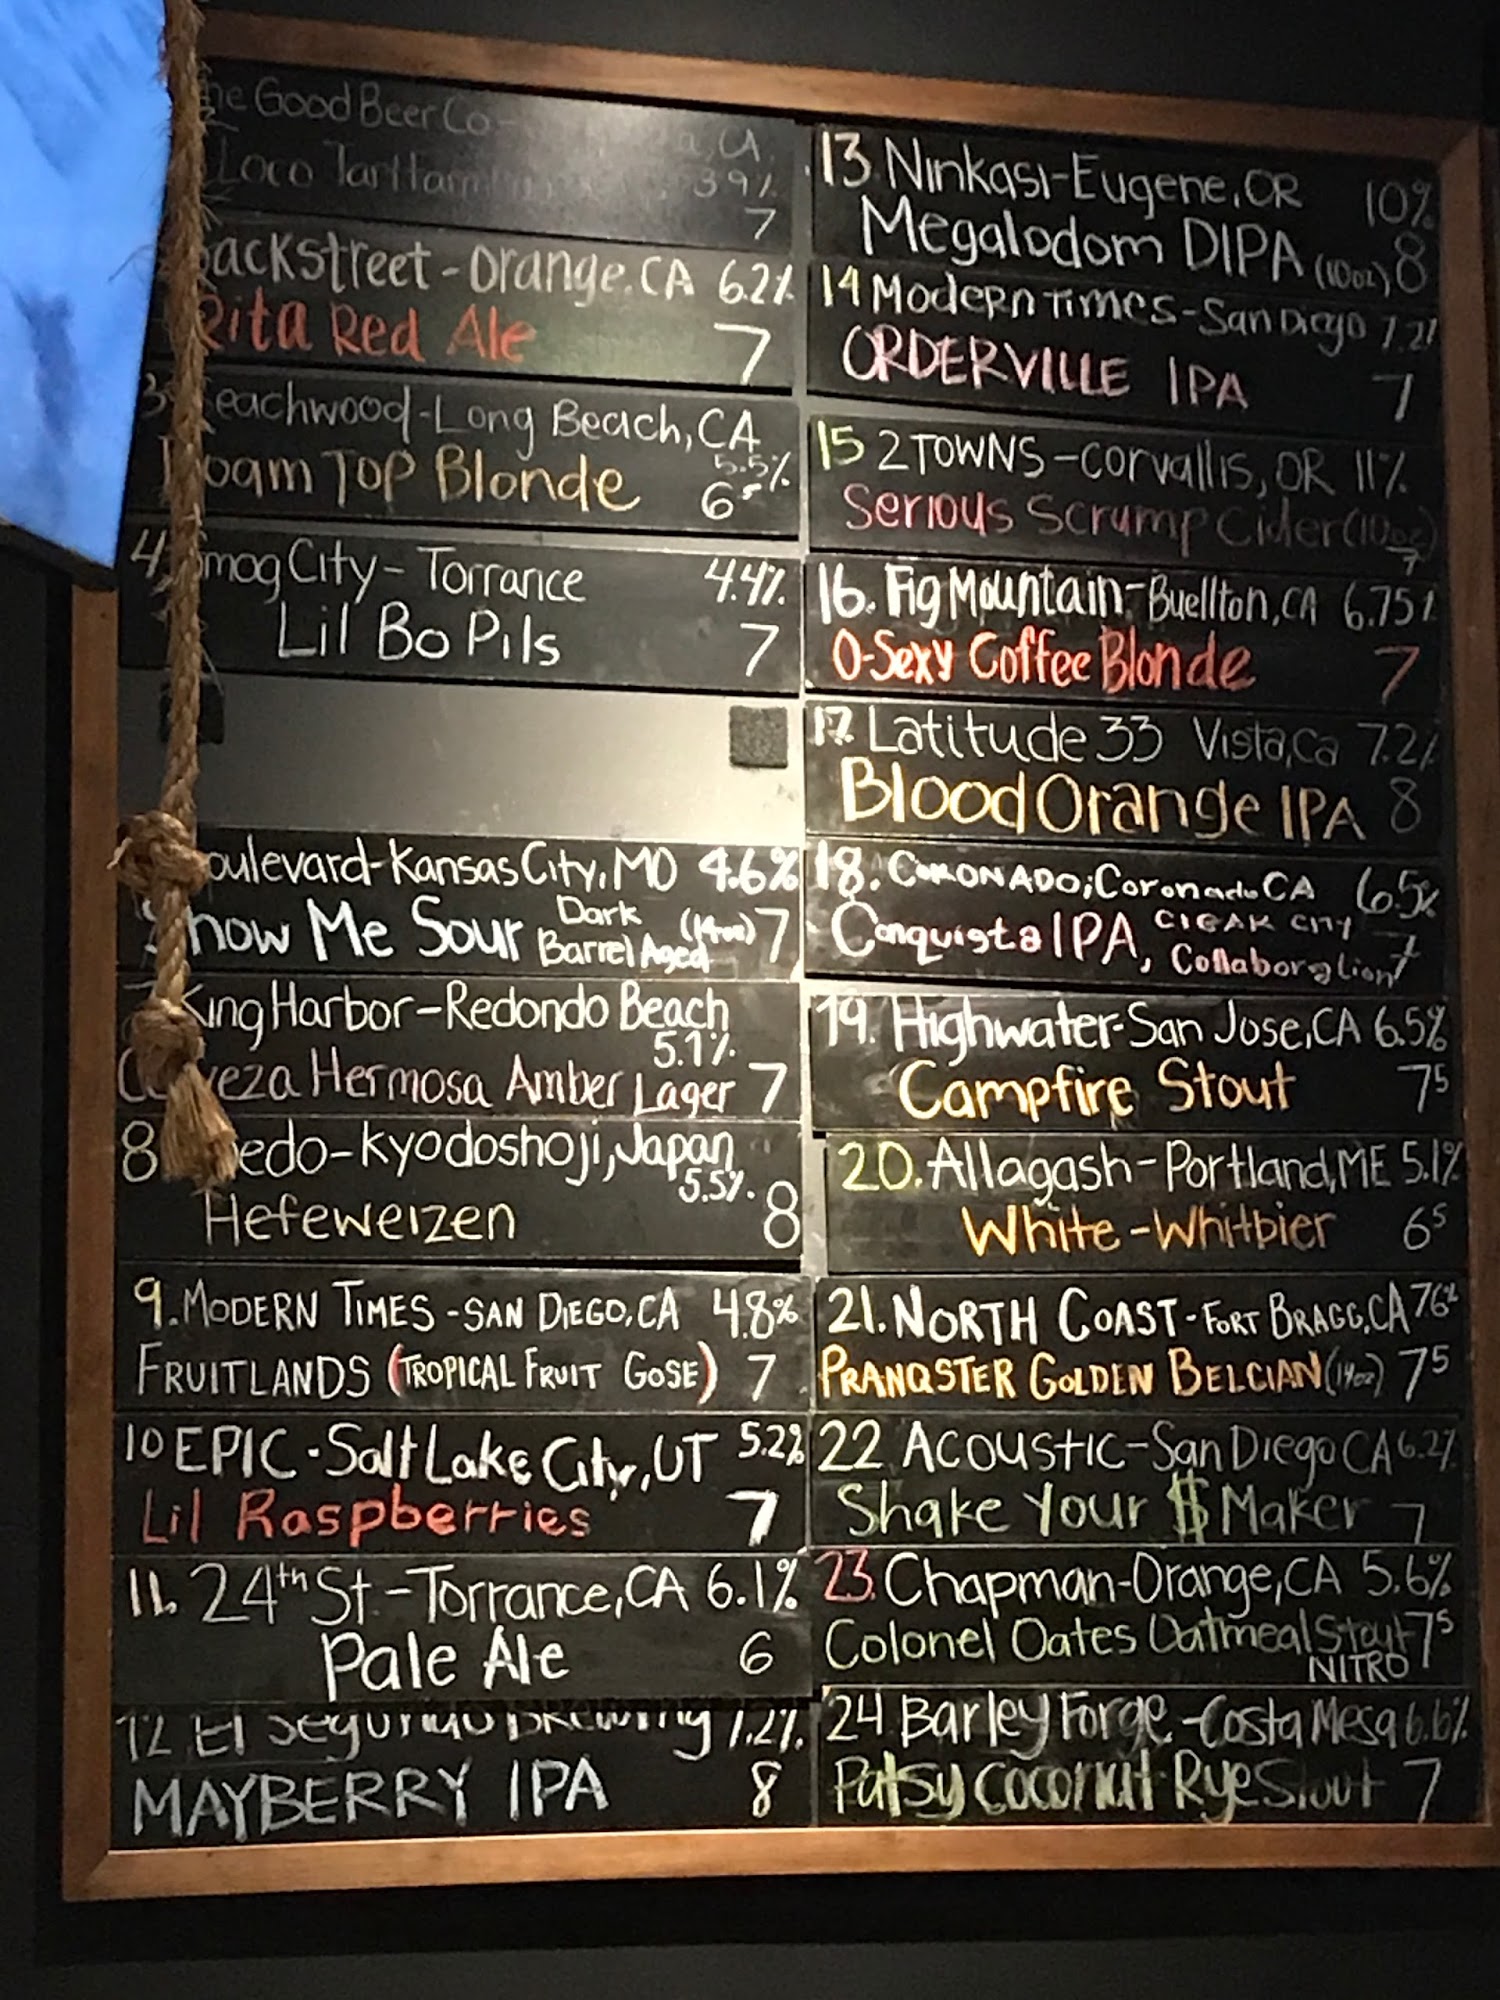 he Good Beer Co
Loco Tart Farm 3.9%
7
ackstreet - Orange, CA 6.2%
Rita Red Ale 7
3 eachwood - Long Beach, CA
oam Top Blonde 5.5% 6⁵
4. mog City - Torrance 4.4%
Lil Bo Pils 7
oulevard - Kansas City, MO 4.6%
Show Me Sour Dark Barrel Aged (14oz) 7
King Harbor - Redondo Beach
5.1%
C veza Hermosa Amber Lager 7
8 edo - Kyodoshoji, Japan
Hefeweizen 5.5%. 8
9. MODERN TIMES - SAN DIEGO, CA 4.8%
FRUITLANDS (TROPICAL FRUIT GOSE) 7
10 EPIC - Salt Lake City, UT 5.2%
Lil Raspberries 7
11. 24th St - Torrance, CA 6.1%
Pale Ale 6
12 El Segundo Brewing 7.2%
MAYBERRY IPA 8
13 Ninkasi - Eugene, OR 10%
Megalodom DIPA (10oz) 8
14 Modern Times - San Diego 7.2%
ORDERVILLE IPA 7
15 2 TOWNS - Corvallis, OR 11%
Serious Scrump Cider (10oz)
7
16. Fig Mountain - Buellton, CA 6.75%
O-Sexy Coffee Blonde 7
17. Latitude 33 Vista, Ca 7.2%
Blood Orange IPA 8
18. CORONADO; Coronado CA 6.5%
Conquista IPA, CIGAR CITY Collaboration 7
19. Highwater - San Jose, CA 6.5%
Campfire Stout 7⁵
20. Allagash - Portland, ME 5.1%
White - Whitbier 6⁵
21. NORTH COAST - FORT BRAGG, CA 7.6%
PRANQSTER GOLDEN BELGIAN (14oz) 7⁵
22 ACOUSTIC - San Diego CA 6.2%
Shake Your $ Maker 7
23. Chapman - Orange, CA 5.6%
Colonel Oates Oatmeal Stout 7⁵
NITRO
24 Barley Forge - Costa Mesa 6.6%
Patsy Coconut Rye Stout 7